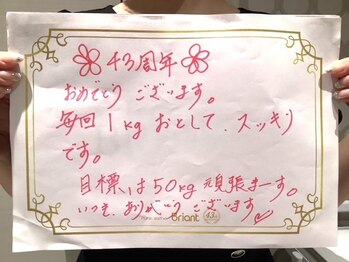 43周年
おめでとうございます。
毎回1kgおとして、スッキリ
です。
目標は50kg頑張まーす。
いつも、ありがとうございます
Briant